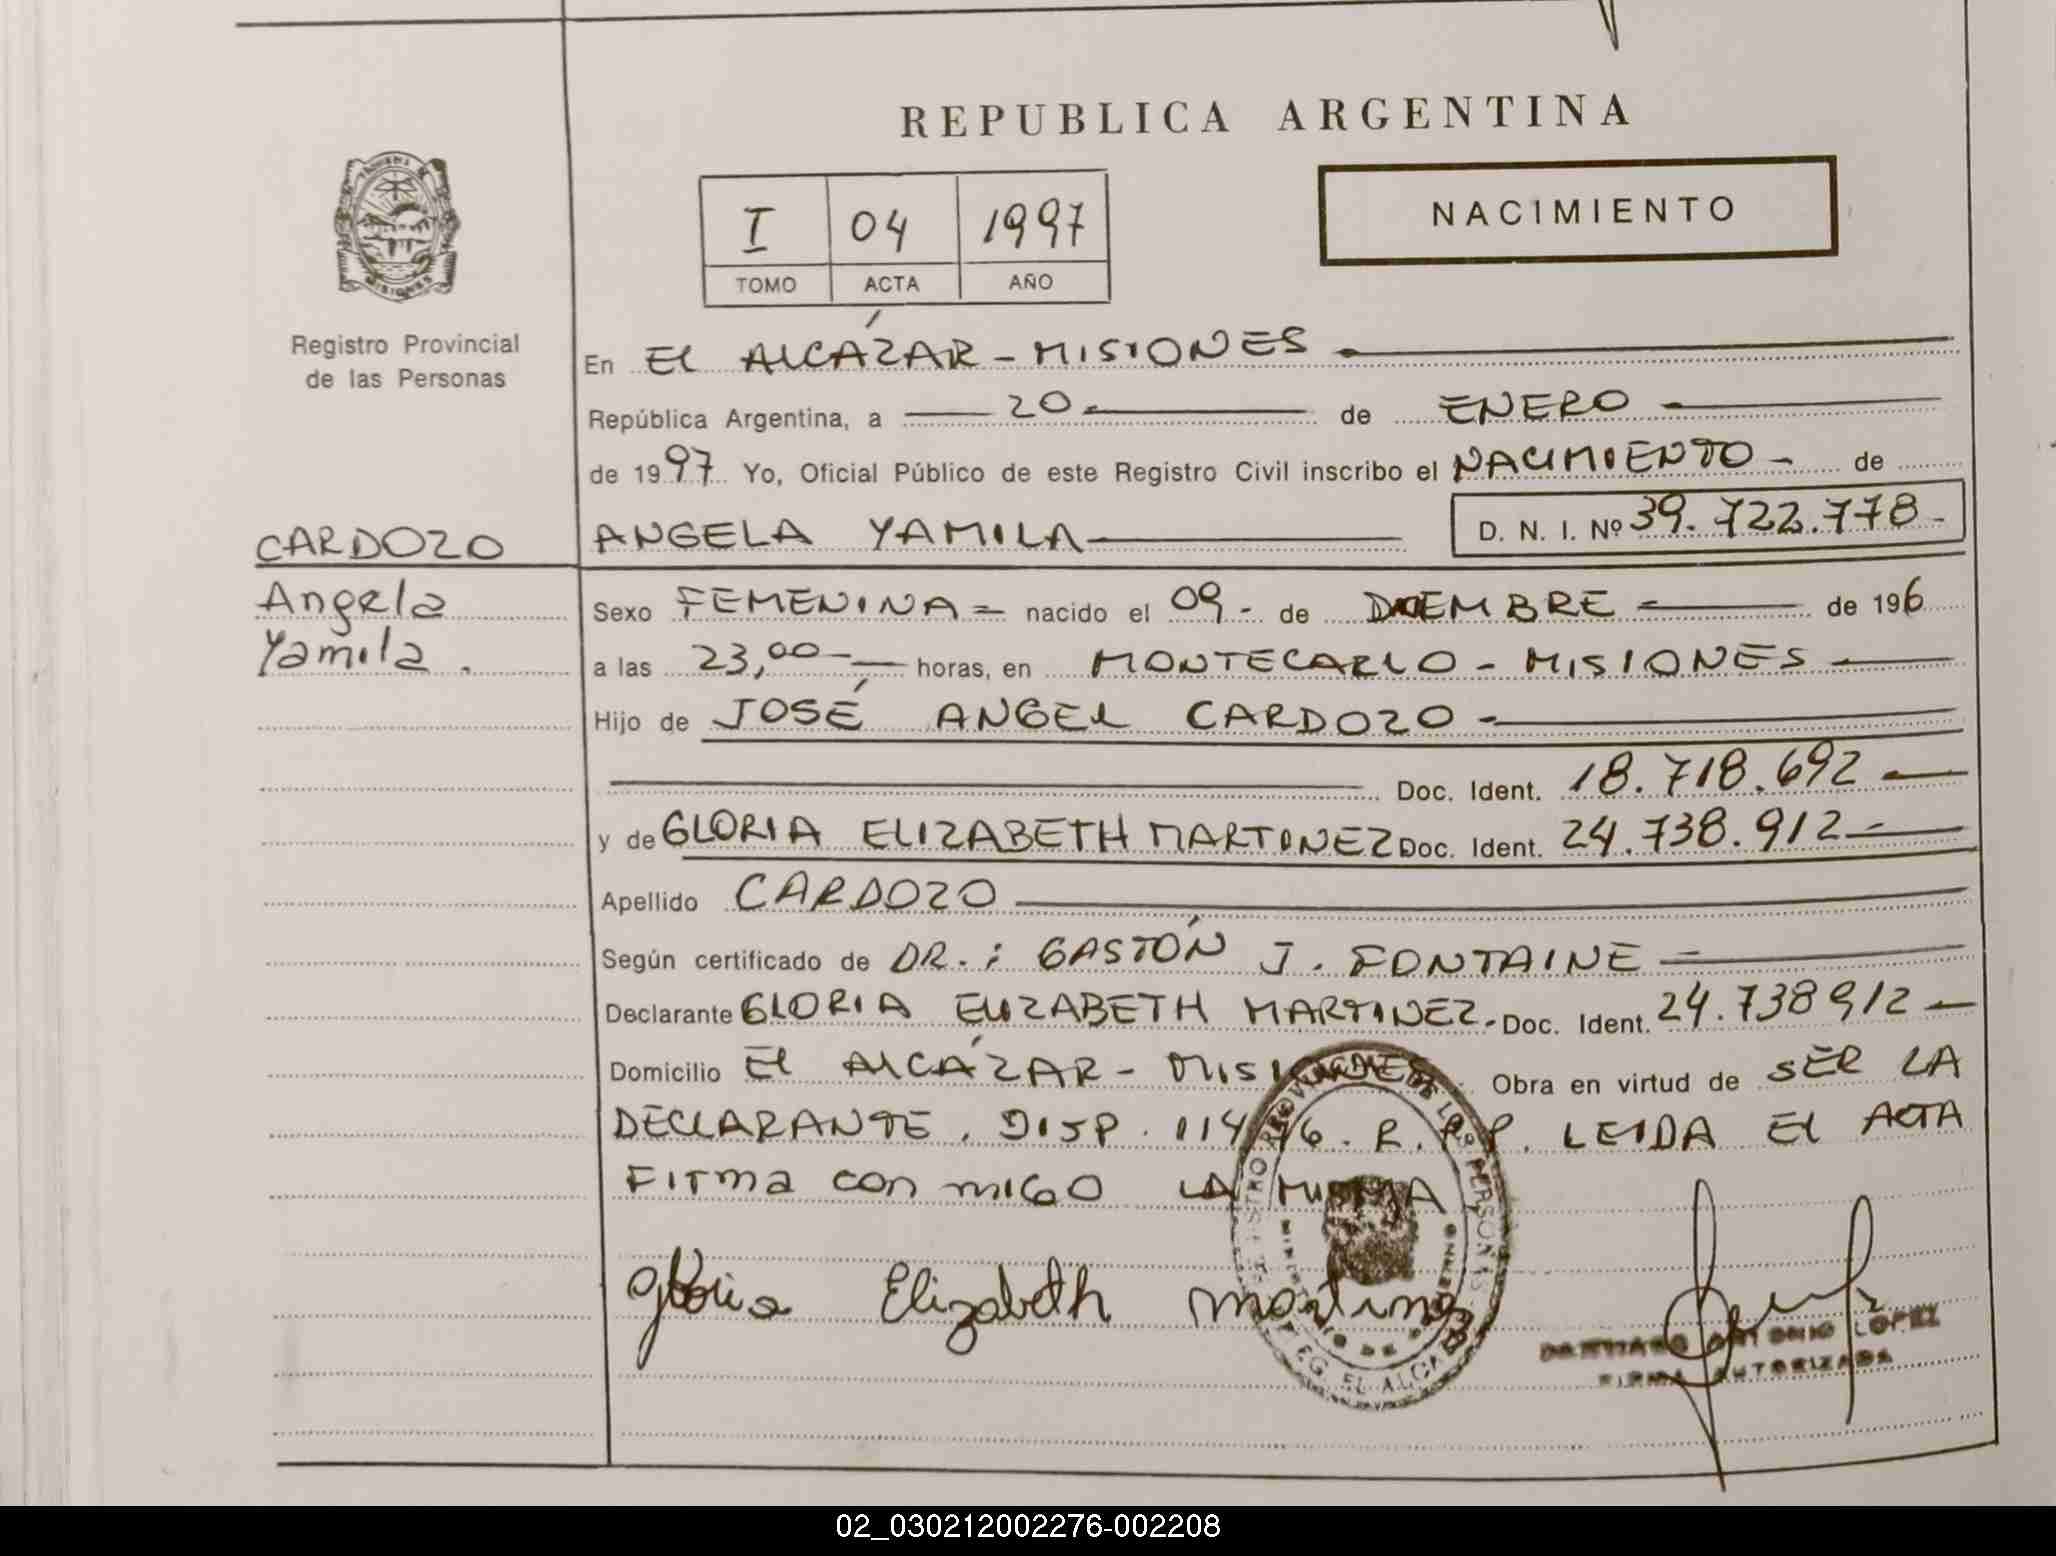 REPUBLICA ARGENTINA
NACIMIENTO
I 04 1997
TOMO ACTA AÑO
MISIONES
Registro Provincial
de las Personas
En EL ALCÁZAR - MISIONES
República Argentina, a 20 de ENERO
de 1997 Yo, Oficial Público de este Registro Civil inscribo el NACIMIENTO - de
CARDOZO
ANGELA YAMILA D. N. I. Nº 39.722.778-
Angela
Yamila.
Sexo FEMENINA = nacido el 09 - de DICIEMBRE de 196
a las 23,00 horas, en MONTECARLO - MISIONES
Hijo de JOSÉ ANGEL CARDOZO -
Doc. Ident. 18.718.692
y de GLORIA ELIZABETH MARTINEZ Doc. Ident. 24.738.912
Apellido CARDOZO
Según certificado de DR.: GASTÓN J. FONTAINE
Declarante GLORIA ELIZABETH MARTINEZ. Doc. Ident. 24.738912
Domicilio EL ALCÁZAR - MISIONES Obra en virtud de SER LA
DECLARANTE. DISP. 114/96. R.P.P. LEIDA El ACTA
Firma con migo LA MISMA
Gloria Elizabeth Martinez
REGISTRO PROVINCIAL DE LAS PERSONAS
EL ALCAZAR
ANTONIO LOPEZ
FIRMA AUTORIZADA
02_030212002276-002208